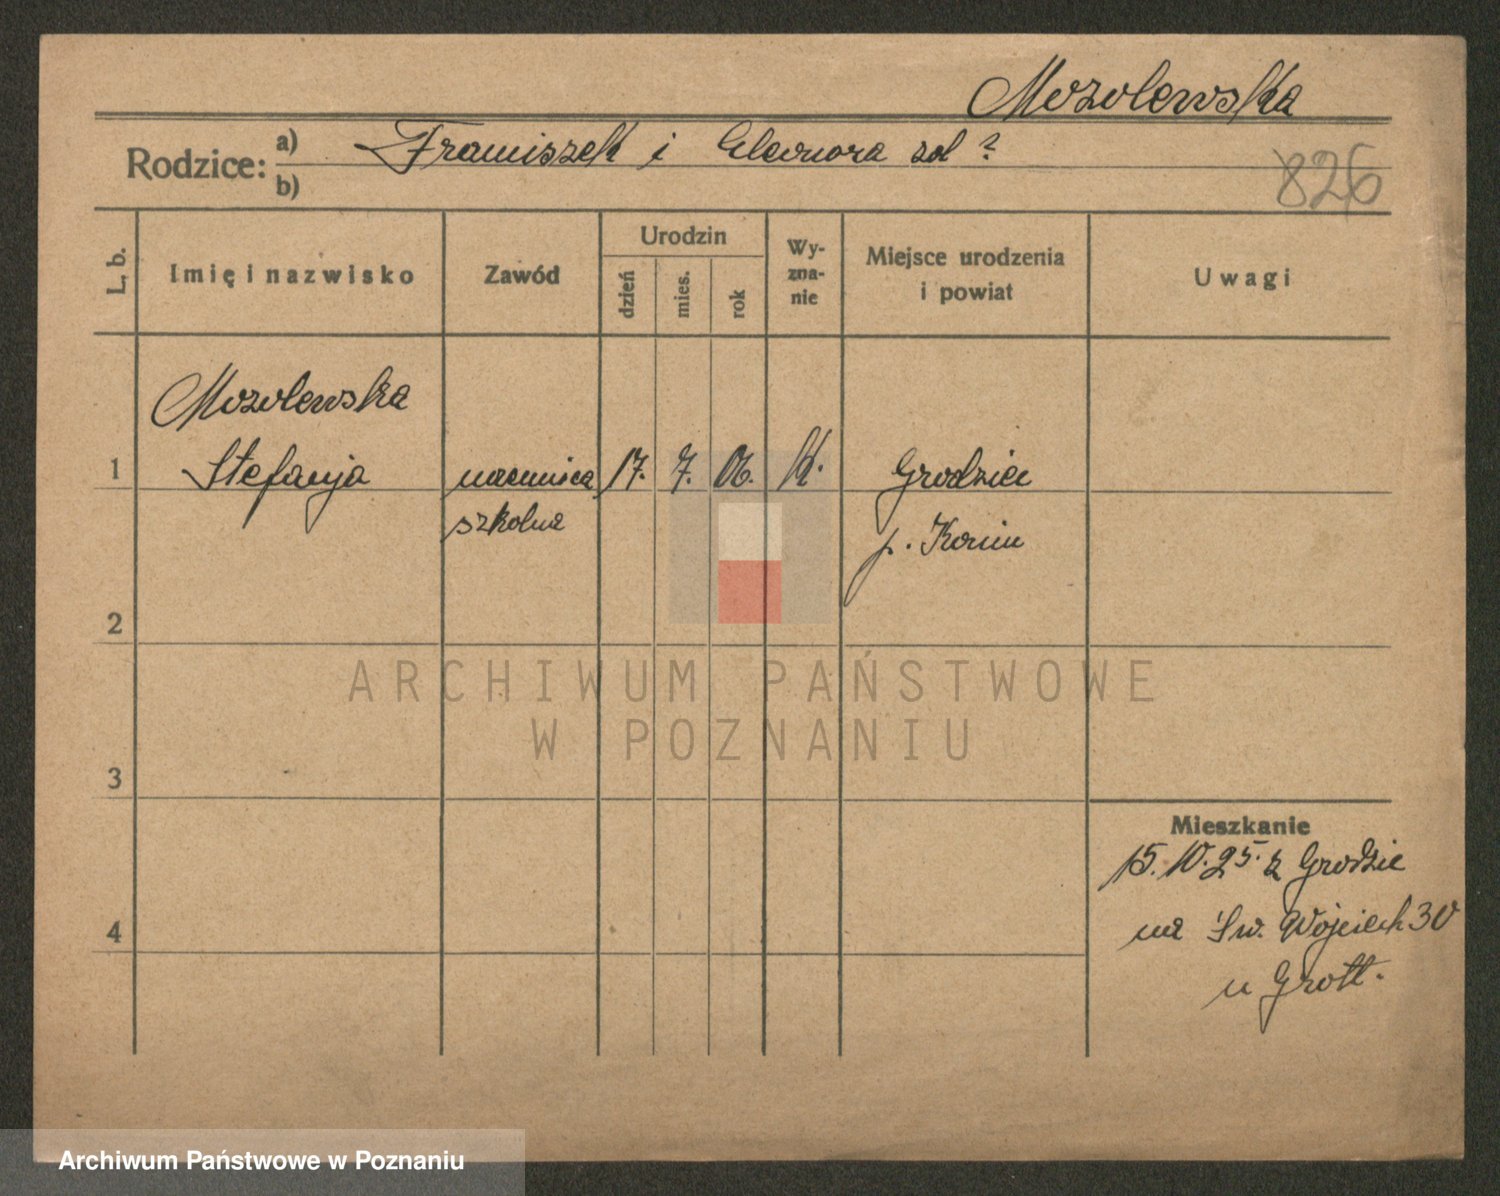 Mozolewska
Rodzice: a) Franciszek i Eleonora zd ?
b)
826
L. b.
Imię i nazwisko
Zawód
Urodzin
dzień
mies.
rok
Wy-
zna-
nie
Miejsce urodzenia
i powiat
Uwagi
Mozolewska
1 Stefanja uczennica 17. 7. 06. k. Grodziec
szkolna p. Konin
2
ARCHIWUM PAŃSTWOWE
W POZNANIU
3
Mieszkanie
15. 10. 25. z Grodzie
na Św. Wojciech 30
4
u Grott.
Archiwum Państwowe w Poznaniu